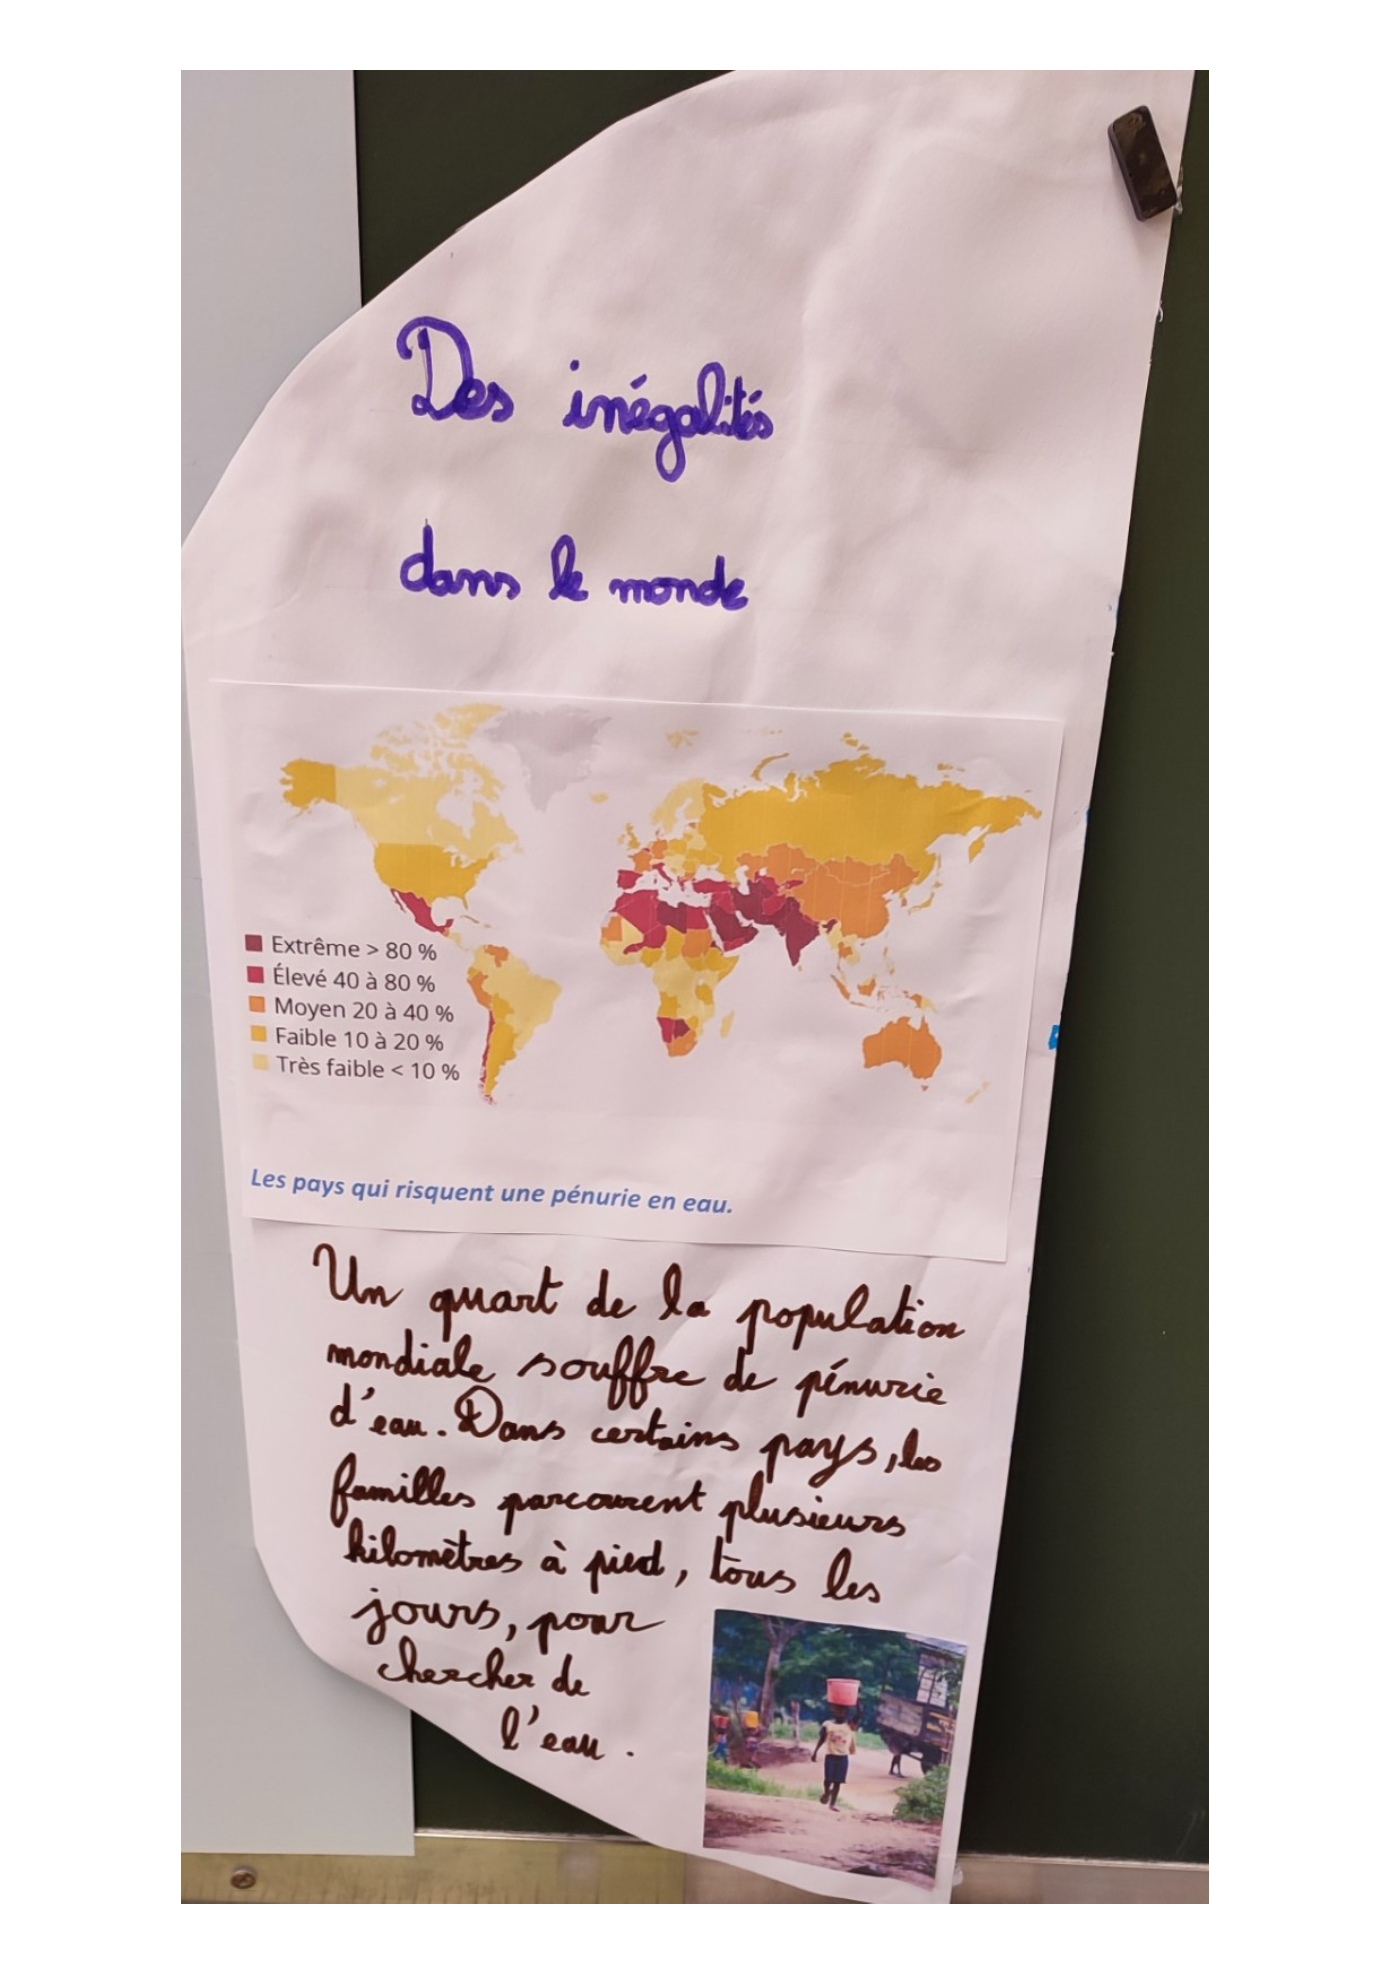 Des inégalités
dans le monde
Extrême > 80 %
Élevé 40 à 80 %
Moyen 20 à 40 %
Faible 10 à 20 %
Très faible < 10 %
Les pays qui risquent une pénurie en eau.
Un quart de la population
mondiale souffre de pénurie
d'eau. Dans certains pays, les
familles parcourent plusieurs
kilomètres à pied, tous les
jours, pour
chercher de
l'eau.